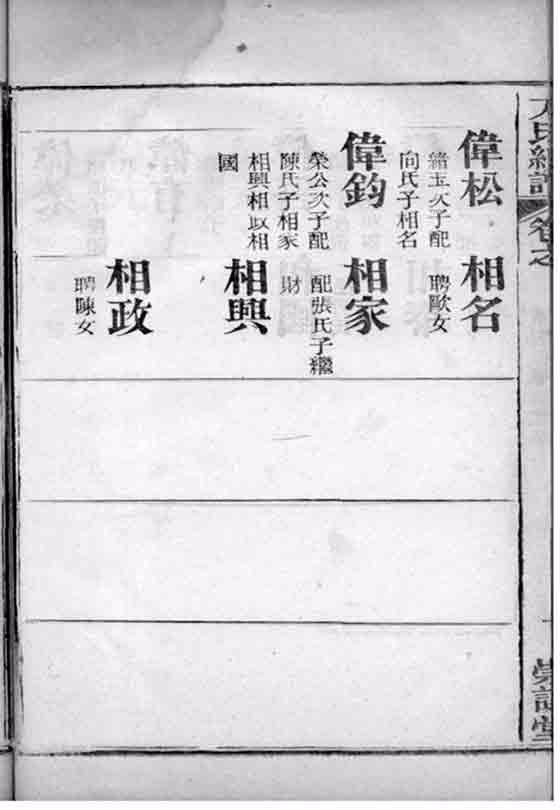 氏續譜
卷之
偉松
緒玉次子配
向氏子相名
相名
聘歐女
偉鈞
榮公次子配
陳氏子相家
相興相政相
國
相家
配張氏子繼
財
相興
相政
聘陳女